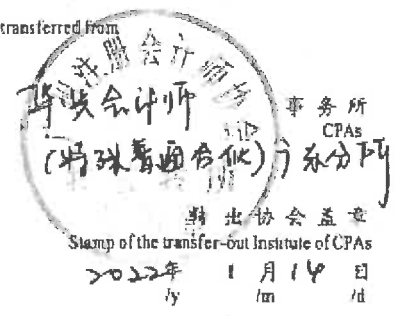 transferred from
注册会计师协会
华兴会计师 事务所
CPAs
(特殊普通合伙)广东分所
转出协会盖章
Stamp of the transfer-out Institute of CPAs
2022年 1 月 14 日
/y /m /d